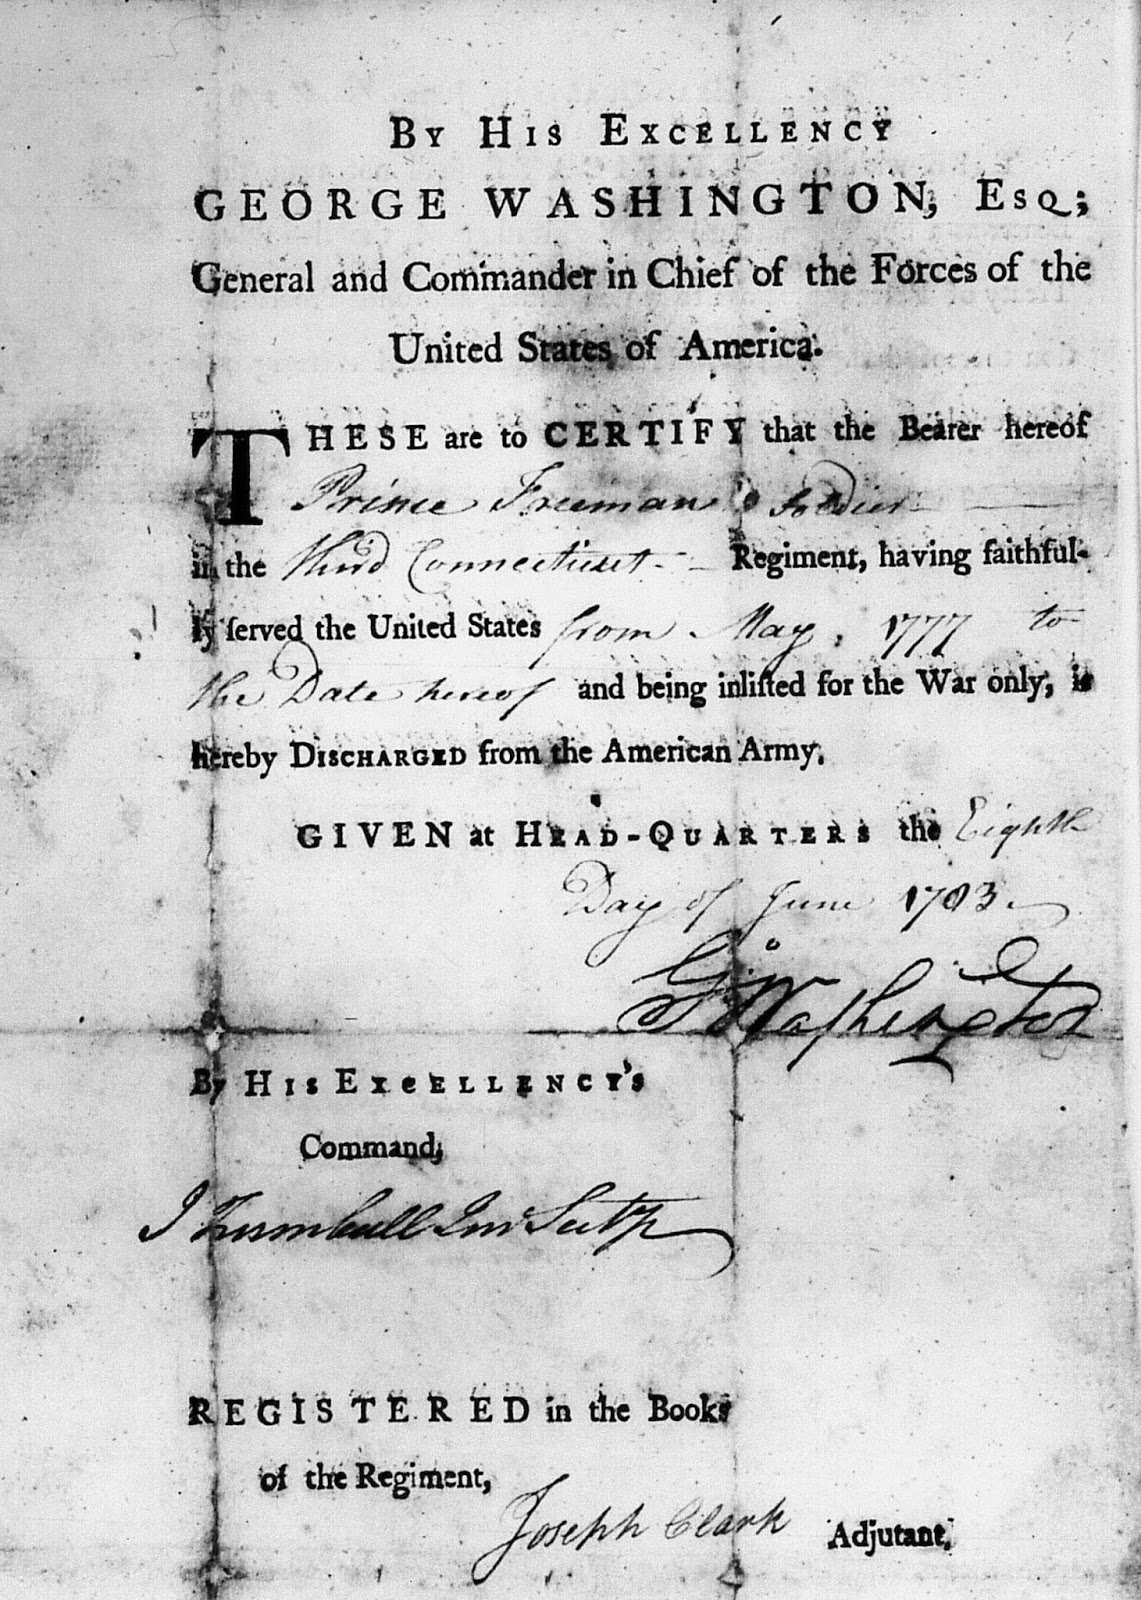 By His Excellency
GEORGE WASHINGTON, Esq;
General and Commander in Chief of the Forces of the
United States of America.
THESE are to CERTIFY that the Bearer hereof
Prince Freeman Soldier
in the third Connecticut Regiment, having faithful-
ly ſerved the United States from May, 1777 to
the Date hereof and being inliſted for the War only, is
hereby DISCHARGED from the American Army.
GIVEN at HEAD-QUARTERS the Eighth
Day of June 1783.
Go Washington
By HIS EXCELLENCY's
Command,
J Trumbull Junr Secty
REGISTERED in the Books
of the Regiment,
Joseph Clark Adjutant.